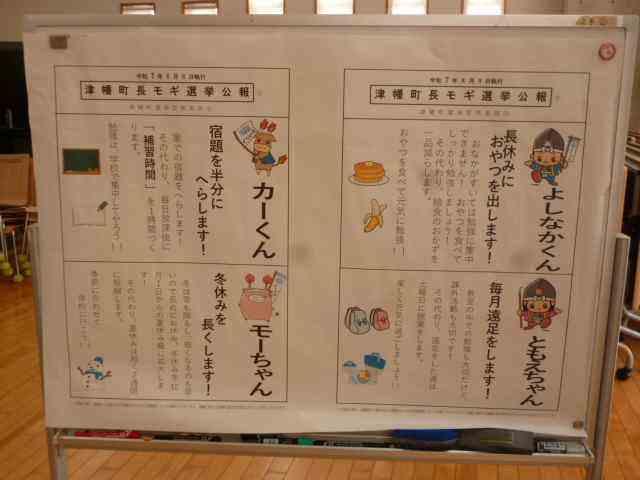 令和7年8月8日執行
津幡町長モギ選挙公報
津幡町選挙管理委員会
よしなかくん
長休みに
おやつを出します！
おなかがすいては勉強に集中
できません！おやつを食べて
しっかり勉強しましょう！
その代わり、給食のおかずを
一品減らします。
おやつを食べて元気に勉強！
ともえちゃん
毎月遠足をします！
教室の中での勉強も大切だけど、
課外活動も大切です！
その代わり、遠足をした週は
土曜日に授業をします。
楽しく元気に過ごしましょう！
令和7年8月8日執行
津幡町長モギ選挙公報
津幡町選挙管理委員会
カーくん
宿題を半分に
へらします！
家での宿題をへらします！
その代わり、毎日放課後に
「補習時間」を1時間つく
ります。
勉強は、学校で集中してやろう！
モーちゃん
冬休みを
長くします！
その代わり、夏休みは短く2週間
に短縮します。